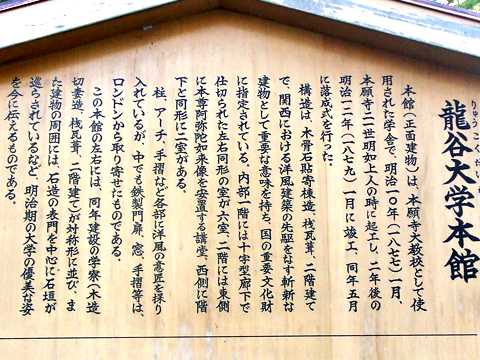 龍谷大学本館
りゅうこくだいがく
本館(正面建物)は、本願寺大教校として使
用された学舎で、明治一〇年(一八七七)一月、
本願寺二一世明如上人の時に起工し、二年後の
明治一二年(一八七九)一月に竣工、同年五月
に落成式を行った。
構造は、木骨石貼寄棟造、桟瓦葺、二階建て
で、関西における洋風建築の先駆をなす斬新な
建物として重要な意味を持ち、国の重要文化財
に指定されている。内部一階には十字型廊下で
仕切られた左右同形の室が六室、二階には東側
に本尊阿弥陀如来像を安置する講堂、西側に階
下と同形に二室がある。
柱、アーチ、手摺など各部に洋風の意匠を採り
入れているが、中でも鉄製門扉、窓、手摺等は、
ロンドンから取り寄せたものである。
この本館の左右には、同年建設の学寮(木造
切妻造、桟瓦葺、二階建て)が対称形に並び、ま
た建物の周囲には、石造の表門を中心に石垣が
巡らされているなど、明治期の大学の優美な姿
を今に伝えるものである。